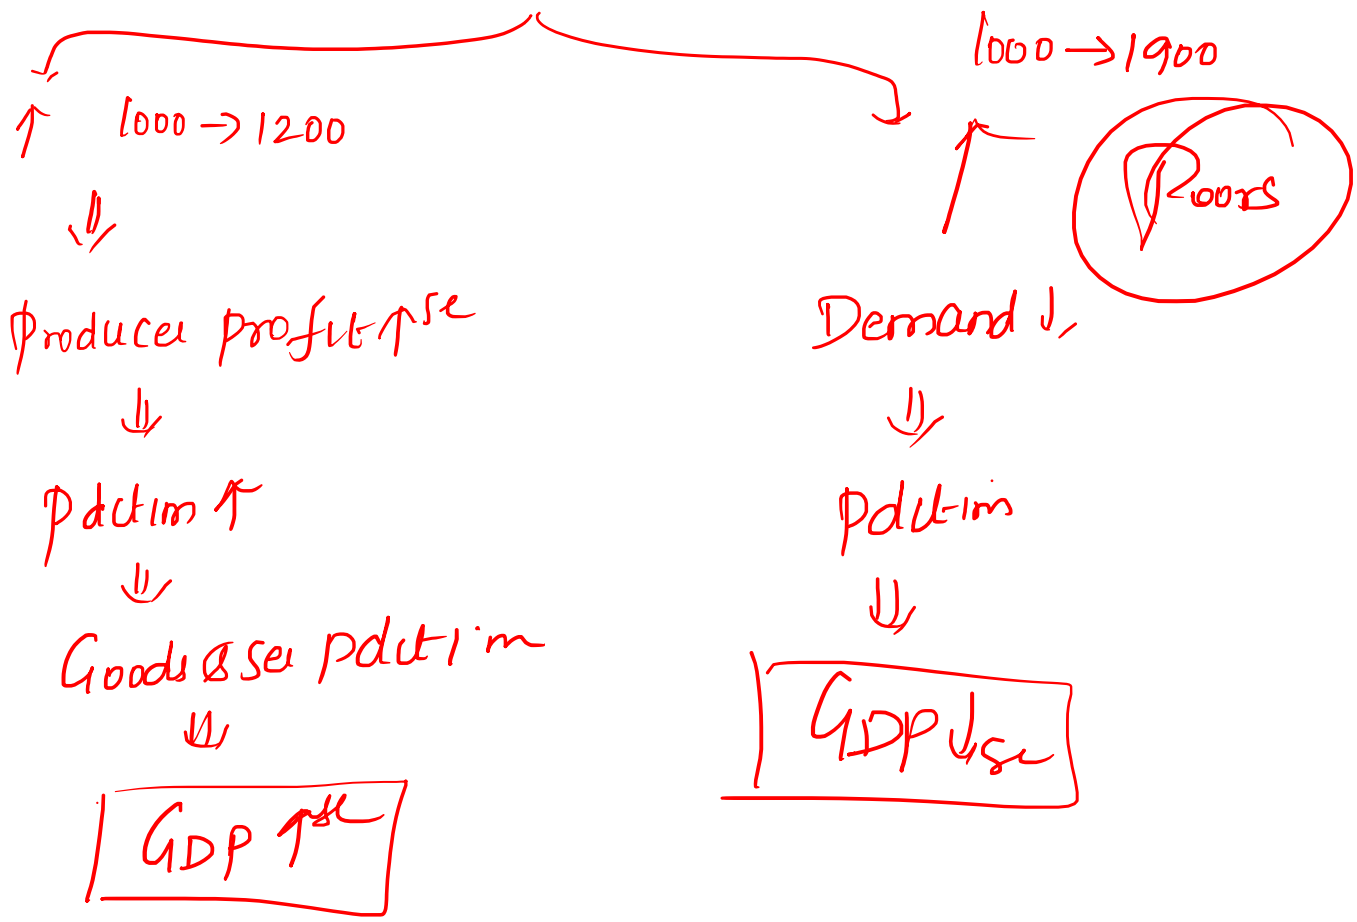 1000 → 1200
Producer profit ↑se
Pdction ↑
Goods & ser Pdction
GDP ↑se
1000 → 1900
Poors
Demand ↓
Pdction
GDP ↓se